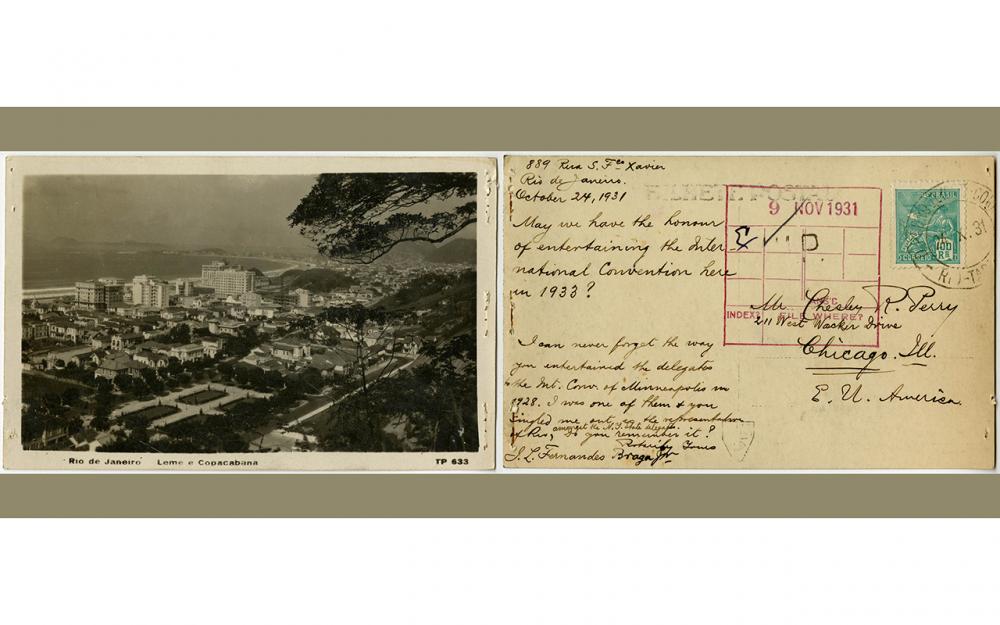 Rio de Janeiro Leme e Copacabana
TP 633
889 Rua S. Fco Xavier
Rio de Janeiro.
October 24, 1931
May we have the honour
of entertaining the Inter-
national Convention here
in 1933?
I can never forget the way
you entertained the delegates
to the Int. Conv. of Minneapolis in
1928. I was one of them & you
singled me out as the representation
amongst the N.Y. State delegates
of Rio, do you remember it?
Rotarily Yours
J. L. Fernandes Braga Jr
BILHETE POSTAL
9 NOV 1931
ANS'D
INDEX? FILE WHERE?
Mr. Chesley R. Perry
211 West Wacker Drive
Chicago. Ill.
E. U. America.
BRASIL
100
CORREIO